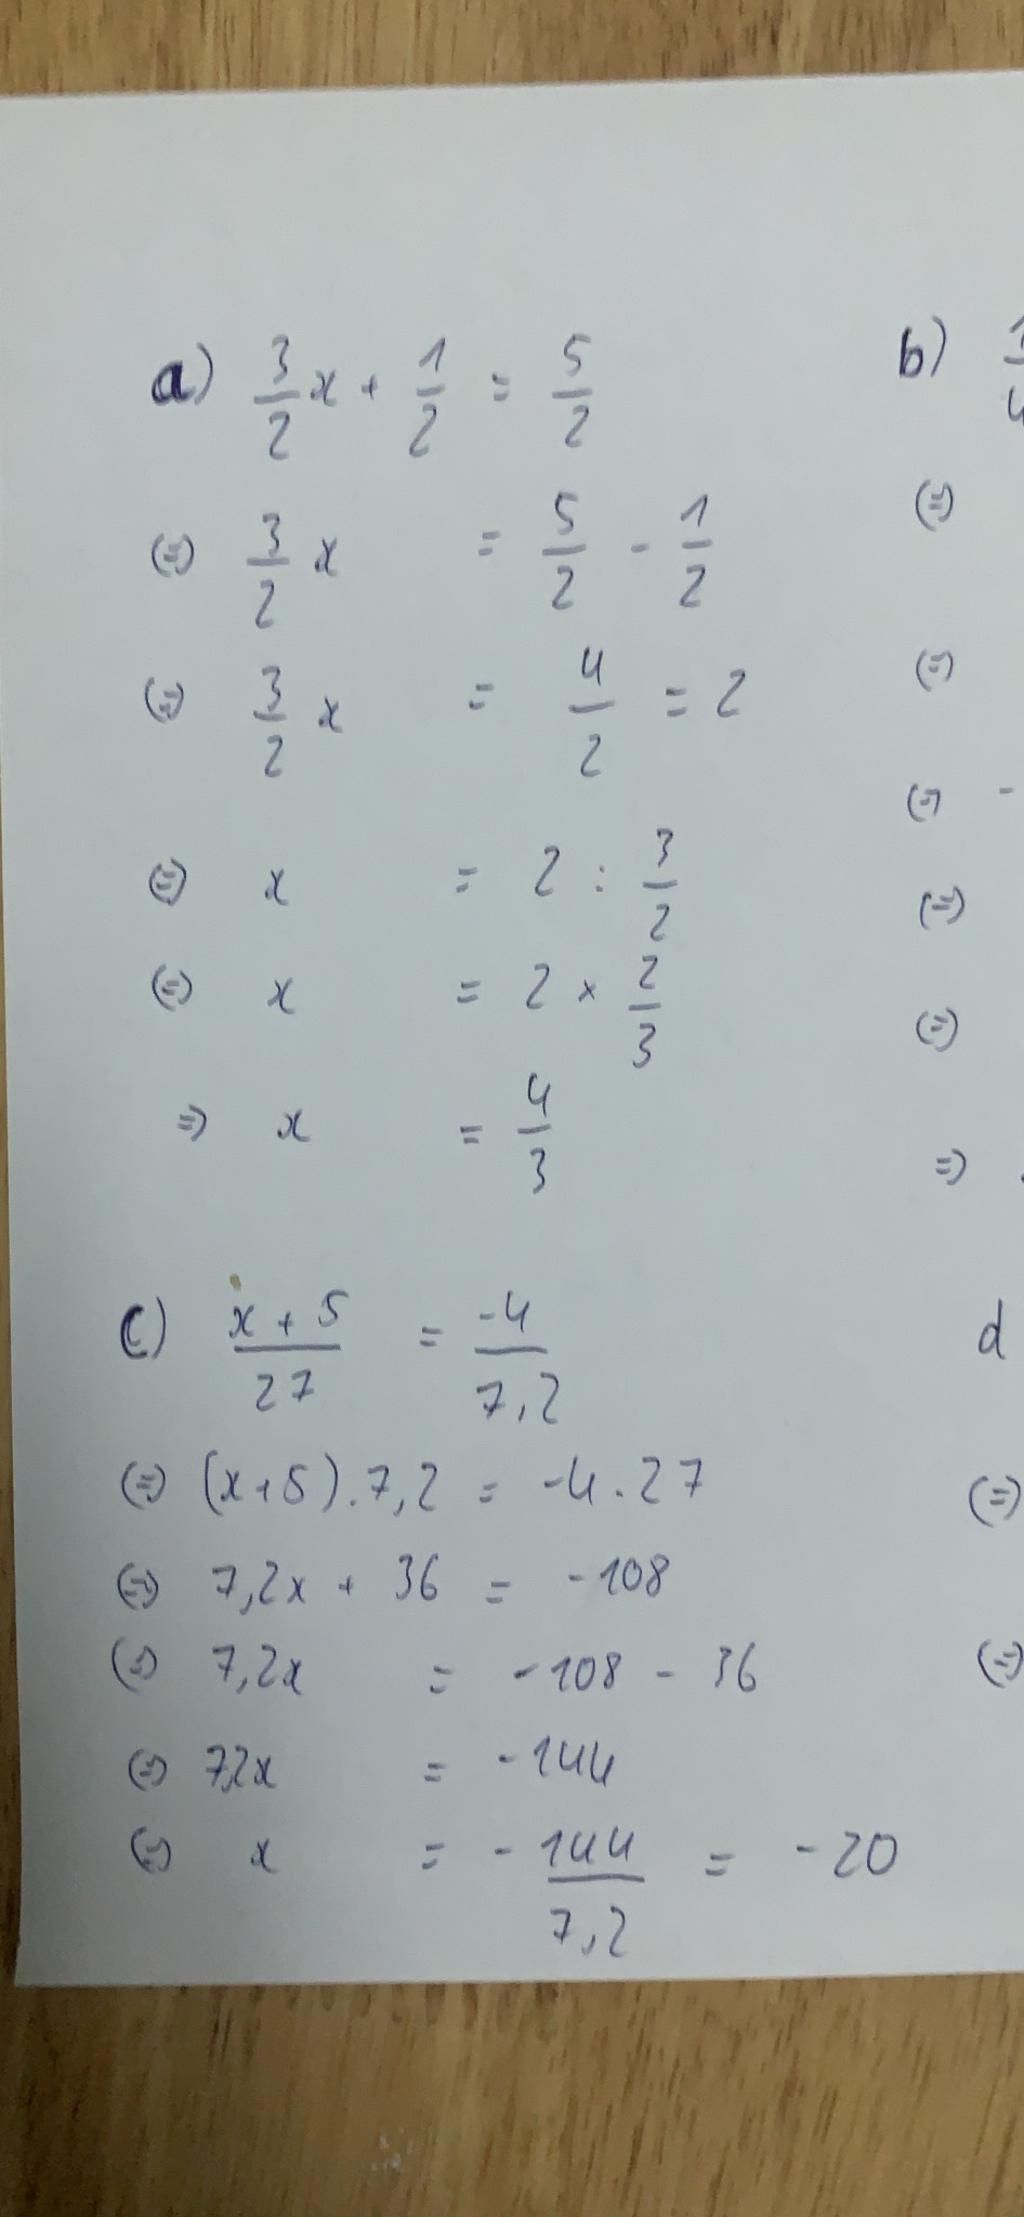 a) 3/2 x + 1/2 = 5/2
(=) 3/2 x = 5/2 - 1/2
(=) 3/2 x = 4/2 = 2
(=) x = 2 : 3/2
(=) x = 2 × 2/3
=) x = 4/3
b)
(=)
(=)
(=) -
(=)
(=)
=)
c) x + 5 / 27 = -4 / 7,2
(=) (x+5).7,2 = -4.27
(=) 7,2x + 36 = -108
(=) 7,2x = -108 - 36
(=) 7,2x = -144
(=) x = - 144/7,2 = -20
d
(=)
(=)